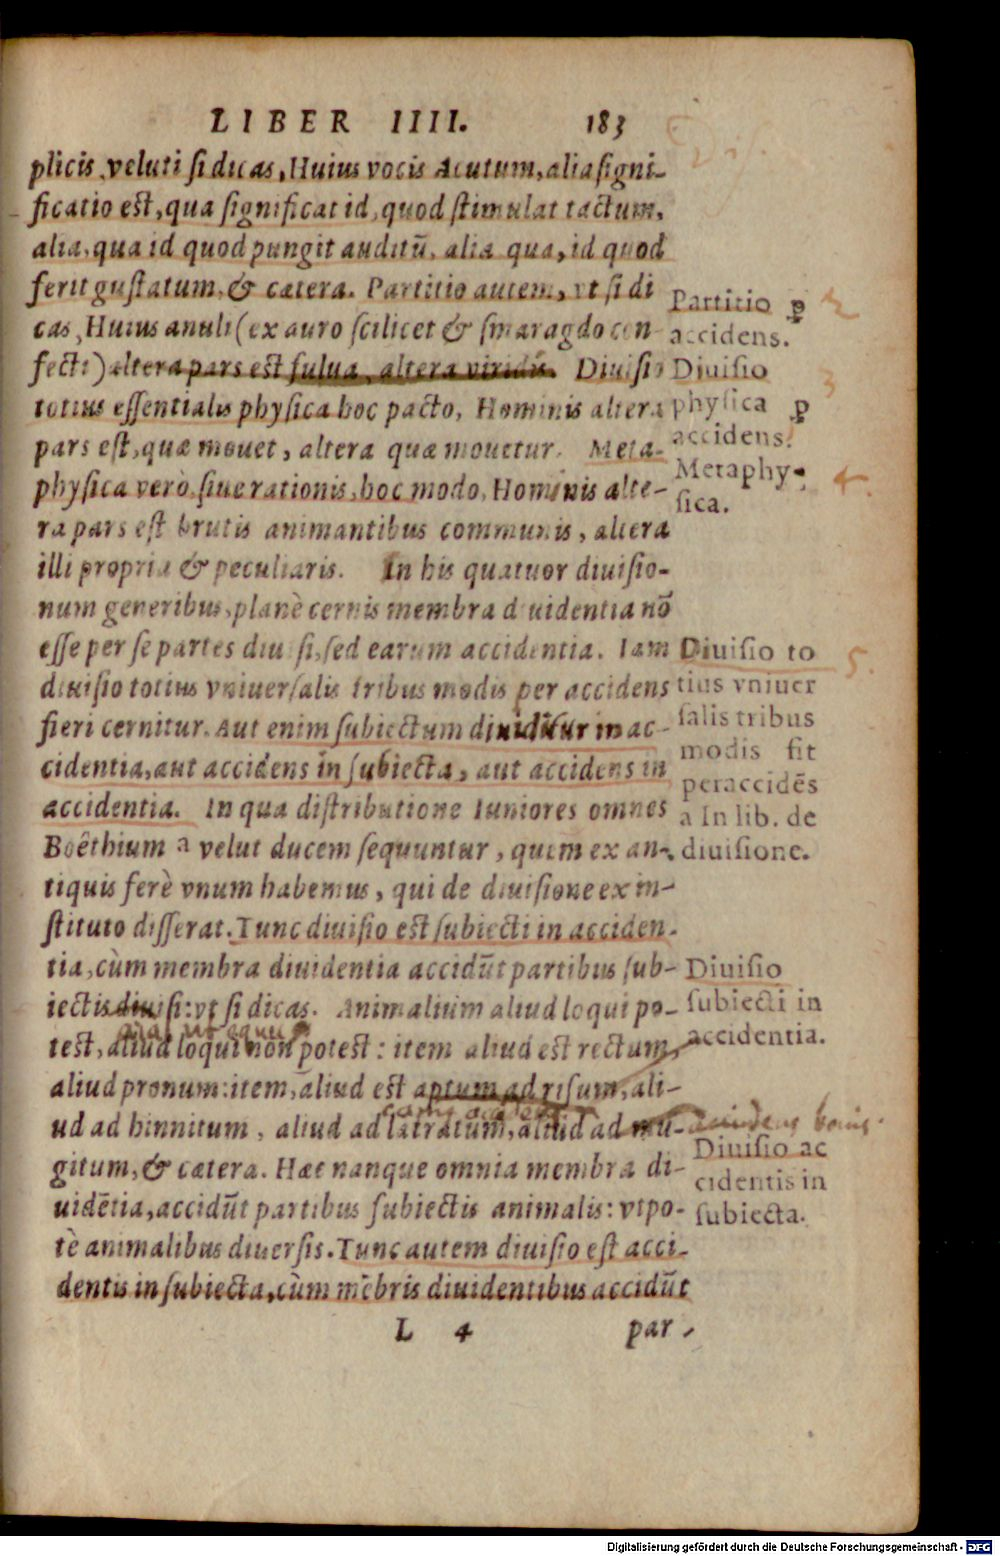 LIBER IIII. 183
plicis, veluti si dicas, Huius vocis Acutum, alia signi-
ficatio est, qua significat id, quod stimulat tactum,
alia, qua id quod pungit auditū, alia qua, id quod
ferit gustatum, & cætera. Partitio autem, vt si di
cas, Huius anuli (ex auro scilicet & smaragdo con-
fecti) altera pars est fulua, altera viridis. Diuisio
totius essentialis physica hoc pacto, Hominis altera
pars est, quæ mouet, altera quæ mouetur. Meta-
physica verò, siue rationis, hoc modo, Hominis alte-
ra pars est brutis animantibus communis, altera
illi propria & peculiaris. In his quatuor diuisio-
num generibus, planè cernis membra diuidentia nō
esse per se partes diuisi, sed earum accidentia. Iam
diuisio totius vniuersalis tribus modis per accidens
fieri cernitur. Aut enim subiectum diuiditur in ac-
cidentia, aut accidens in subiecta, aut accidens in
accidentia. In qua distributione Iuniores omnes
Boëthium a velut ducem sequuntur, quem ex an-
tiquis ferè vnum habemus, qui de diuisione ex in-
stituto disserat. Tunc diuisio est subiecti in acciden-
tia, cùm membra diuidentia accidūt partibus sub-
iectis diuisi: vt si dicas. Animalium aliud loqui po-
test, aliud loqui non potest: item aliud est rectum,
aliud pronum: item, aliud est aptum ad risum, ali-
ud ad hinnitum, aliud ad latratum, aliud ad mu-
gitum, & cætera. Hæc nanque omnia membra di-
uidētia, accidūt partibus subiectis animalis: vtpo-
tè animalibus diuersis. Tunc autem diuisio est acci-
dentis in subiecta, cùm mēbris diuidentibus accidūt
L 4 par-
Partitio ꝑ
accidens.
Diuisio
physica ꝑ
accidens.
Metaphy-
sica.
Diuisio to
tius vniuer
salis tribus
modis fit
per accidēs
a In lib. de
diuisione.
Diuisio
subiecti in
accidentia.
Diuisio ac
cidentis in
subiecta.
2
3
4.
5.
Digitalisierung gefördert durch die Deutsche Forschungsgemeinschaft - DFG